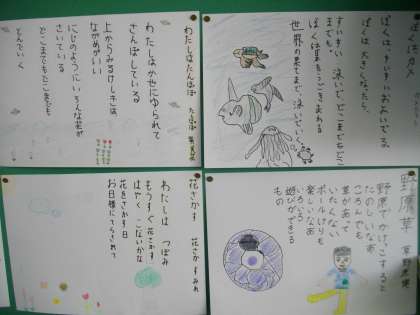 わたしはたんぽぽ
たんぽぽ
わたしはかぜにゆられて
さんぽしている
上からみるけしきは
ながめがいい
にじのようにいろんな花が
さいている
どこまでもどこまでも
とんでいく
ぼくは、すいすいおよいでる。
ぼくは大きくなったら、
すいすい泳いで、どこまでもどこ
までも。
世界の果てまで泳いでいく。
花さかす
花さかすみれ
わたしは つぼみ
もうすぐ花さかす
はやくこないかな
花をさかす日
お日様にてらされて
野原草
草野
野原でかけっこすると
たのしいなあ
ころんでも
草があって
いたくない
ボールけりも
楽しいなあ
いろいろ
遊びができる
もの